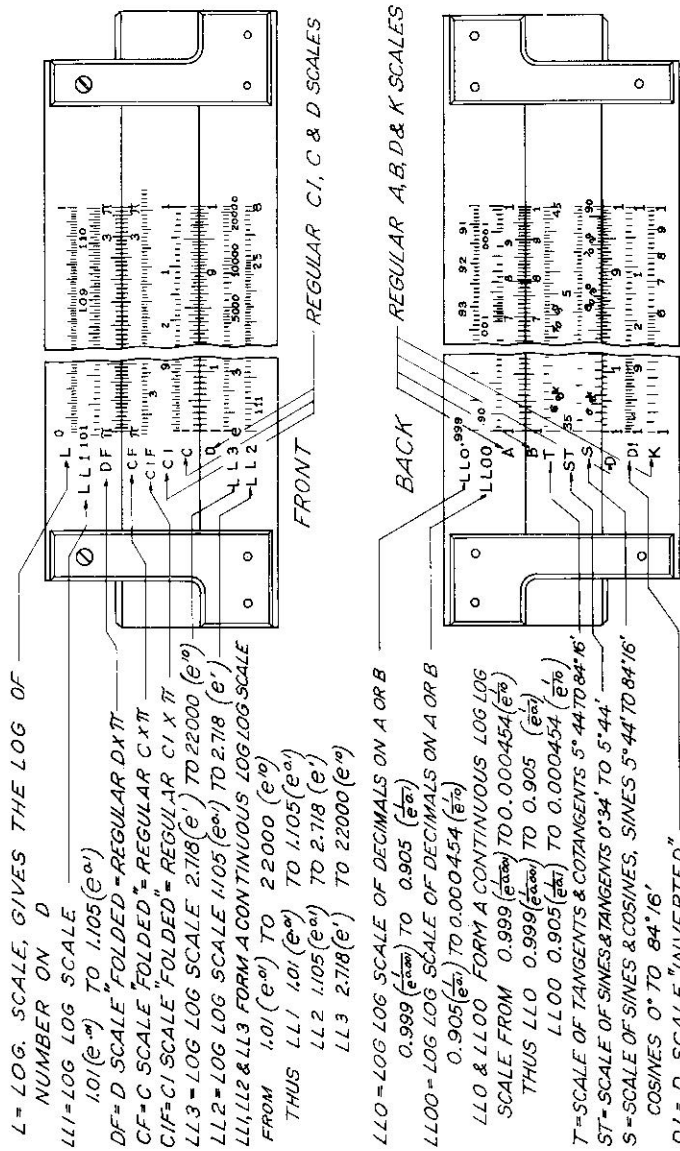 L = LOG. SCALE, GIVES THE LOG OF
NUMBER ON D
LL1=LOG LOG SCALE
1.01(e^.01) TO 1.105(e^0.1)
DF=D SCALE "FOLDED"=REGULAR DXπ
CF=C SCALE "FOLDED"=REGULAR CXπ
CIF=CI SCALE "FOLDED"=REGULAR CI X π
LL3=LOG LOG SCALE 2.718(e^1) TO 22000(e^10)
LL2=LOG LOG SCALE 1.105(e^0.1) TO 2.718(e^1)
LL1, LL2 & LL3 FORM A CONTINUOUS LOG LOG SCALE
FROM 1.01(e^.01) TO 22000(e^10)
THUS LL1 1.01(e^.01) TO 1.105(e^0.1)
LL2 1.105(e^0.1) TO 2.718(e^1)
LL3 2.718(e^1) TO 22000(e^10)
L 0
LL1 1.01
DF π
CF π
CIF 3
CI 9
C
D 1
LL3 e 3
LL2 1.11
1
1.09 1.10
3 π
3 π
2 1
1
9 1
5000 10000 20000
2.5 8
FRONT
REGULAR CI, C & D SCALES
LL0=LOG LOG SCALE OF DECIMALS ON A OR B
0.999(1/e^0.001) TO 0.905(1/e^0.1)
LL00=LOG LOG SCALE OF DECIMALS ON A OR B
0.905(1/e^0.1) TO 0.000454(1/e^10)
LL0 & LL00 FORM A CONTINUOUS LOG LOG
SCALE FROM 0.999(1/e^0.001) TO 0.000454(1/e^10)
THUS LL0 0.999(1/e^0.001) TO 0.905 (1/e^0.1)
LL00 0.905(1/e^0.1) TO 0.000454 (1/e^10)
T=SCALE OF TANGENTS & COTANGENTS 5° 44' TO 84°16'
ST=SCALE OF SINES & TANGENTS 0°34' TO 5°44'
S=SCALE OF SINES & COSINES, SINES 5°44' TO 84°16'
COSINES 0° TO 84°16'
D SCALE "INVERTED"
BACK
REGULAR A, B, D & K SCALES
LL0 .999
LL00 .90
A 1
B 1
T
ST 35
S
D 1
DI 1 9
K 1
93 92 91
001 0001
7 8 9 1
7 8 9 1
45
5
90
9 1
2 1
6 7 8 9 1